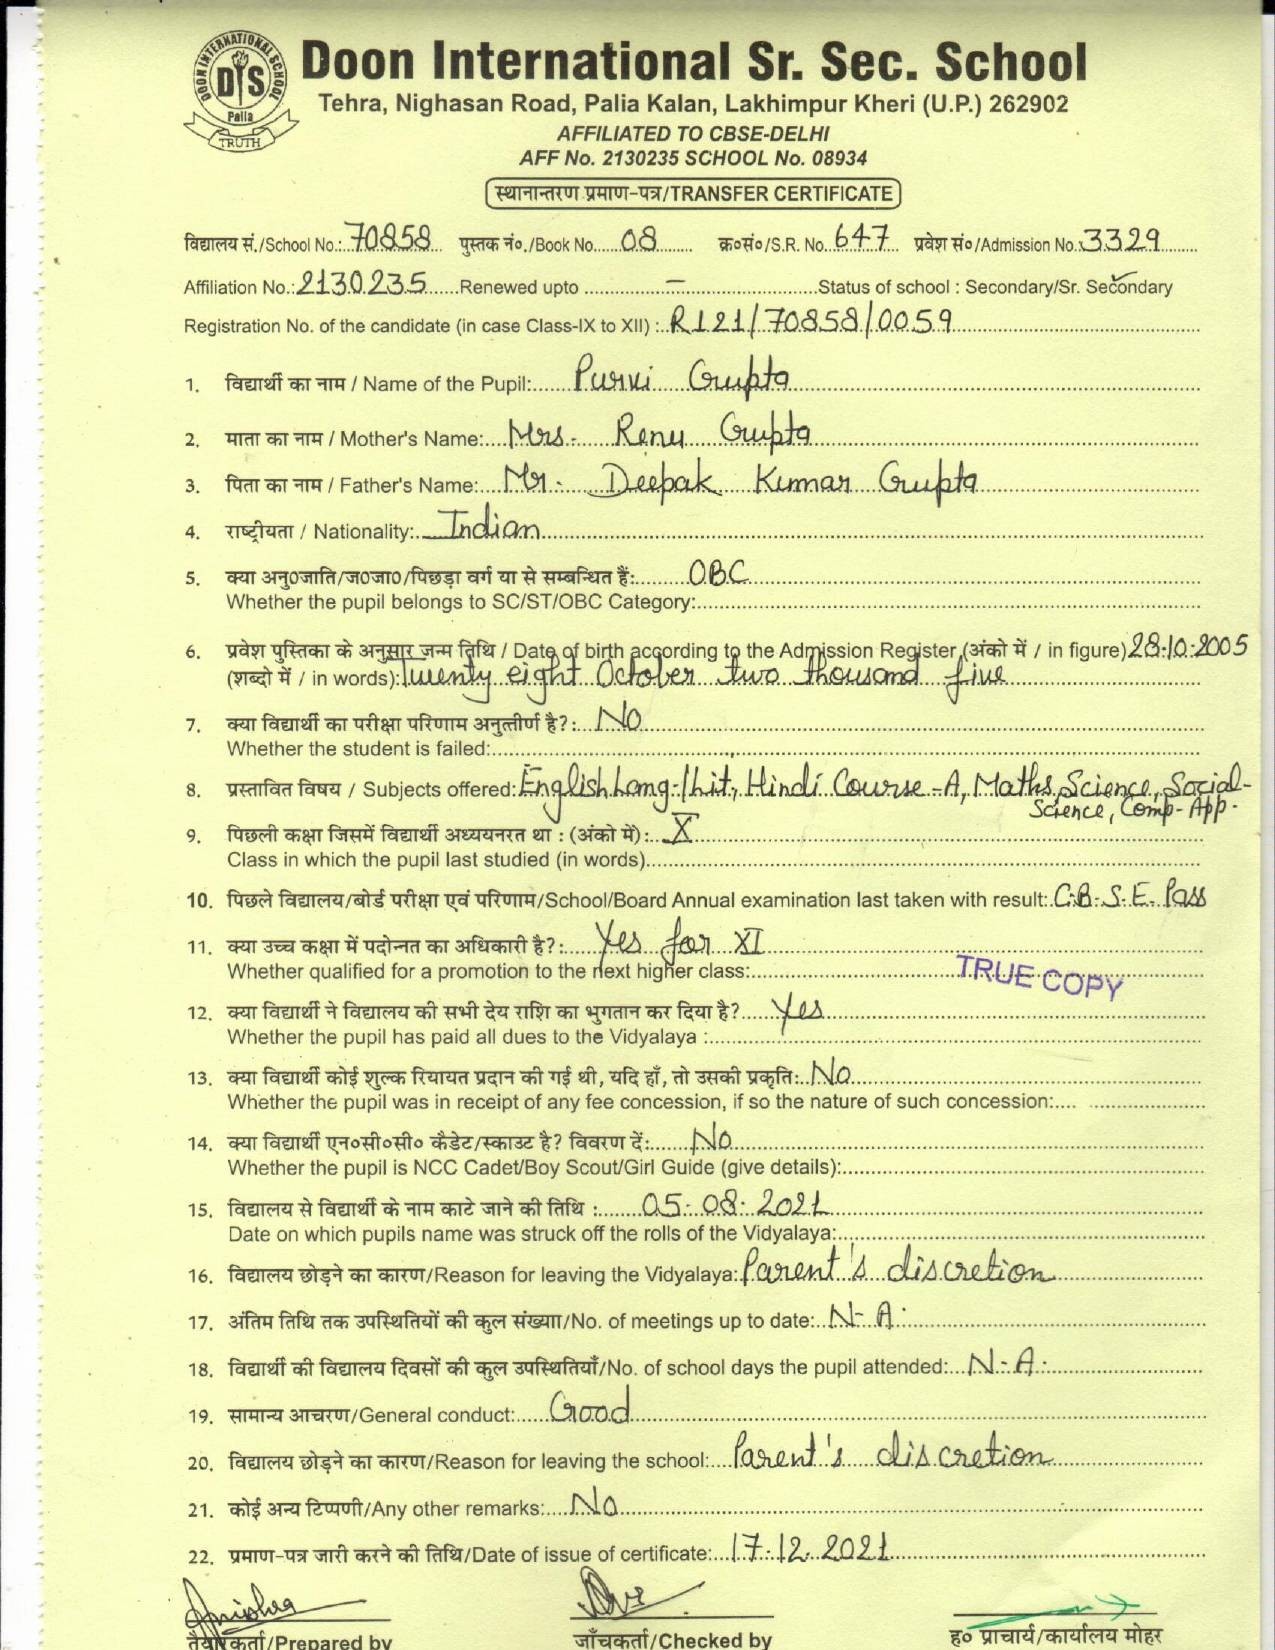 DOON INTERNATIONAL SCHOOL
DIS
Palia
TRUTH
Doon International Sr. Sec. School
Tehra, Nighasan Road, Palia Kalan, Lakhimpur Kheri (U.P.) 262902
AFFILIATED TO CBSE-DELHI
AFF No. 2130235 SCHOOL No. 08934
स्थानान्तरण प्रमाण-पत्र/TRANSFER CERTIFICATE
विद्यालय सं./School No.: 70858 पुस्तक नं०./Book No. 08 क्र०सं०/S.R. No. 647 प्रवेश सं०/Admission No.: 3329
Affiliation No.: 2130235 Renewed upto – Status of school : Secondary/Sr. Secondary
Registration No. of the candidate (in case Class-IX to XII) : R121/70858/0059
1. विद्यार्थी का नाम / Name of the Pupil: Purvi Gupta
2. माता का नाम / Mother's Name: Mrs. Renu Gupta
3. पिता का नाम / Father's Name: Mr. Deepak Kumar Gupta
4. राष्ट्रीयता / Nationality: Indian
5. क्या अनु०जाति/ज०जा०/पिछड़ा वर्ग या से सम्बन्धित हैं: OBC
Whether the pupil belongs to SC/ST/OBC Category:
6. प्रवेश पुस्तिका के अनुसार जन्म तिथि / Date of birth according to the Admission Register (अंको में / in figure) 28.10.2005
(शब्दो में / in words): Twenty eight October two thousand five
7. क्या विद्यार्थी का परीक्षा परिणाम अनुत्तीर्ण है?: No
Whether the student is failed:
8. प्रस्तावित विषय / Subjects offered: English Lang-/Lit, Hindi Course-A, Maths, Science, Social-
Science, Comp-App.
9. पिछली कक्षा जिसमें विद्यार्थी अध्ययनरत था : (अंको में) : X
Class in which the pupil last studied (in words)
10. पिछले विद्यालय/बोर्ड परीक्षा एवं परिणाम/School/Board Annual examination last taken with result: C.B.S.E. Pass
11. क्या उच्च कक्षा में पदोन्नत का अधिकारी है?: Yes for XI
Whether qualified for a promotion to the next higher class:
TRUE COPY
12. क्या विद्यार्थी ने विद्यालय की सभी देय राशि का भुगतान कर दिया है? Yes
Whether the pupil has paid all dues to the Vidyalaya :
13. क्या विद्यार्थी कोई शुल्क रियायत प्रदान की गई थी, यदि हाँ, तो उसकी प्रकृति: No
Whether the pupil was in receipt of any fee concession, if so the nature of such concession:
14. क्या विद्यार्थी एन०सी०सी० कैडेट/स्काउट है? विवरण दें: No
Whether the pupil is NCC Cadet/Boy Scout/Girl Guide (give details):
15. विद्यालय से विद्यार्थी के नाम काटे जाने की तिथि : 05.08.2021
Date on which pupils name was struck off the rolls of the Vidyalaya:
16. विद्यालय छोड़ने का कारण/Reason for leaving the Vidyalaya: Parent's discretion
17. अंतिम तिथि तक उपस्थितियों की कुल संख्या/No. of meetings up to date: N-A.
18. विद्यार्थी की विद्यालय दिवसों की कुल उपस्थितियाँ/No. of school days the pupil attended: N.A.
19. सामान्य आचरण/General conduct: Good
20. विद्यालय छोड़ने का कारण/Reason for leaving the school: Parent's discretion
21. कोई अन्य टिप्पणी/Any other remarks: No
22. प्रमाण-पत्र जारी करने की तिथि/Date of issue of certificate: 17.12.2021
तैयारकर्ता/Prepared by जाँचकर्ता/Checked by ह० प्राचार्य/कार्यालय मोहर